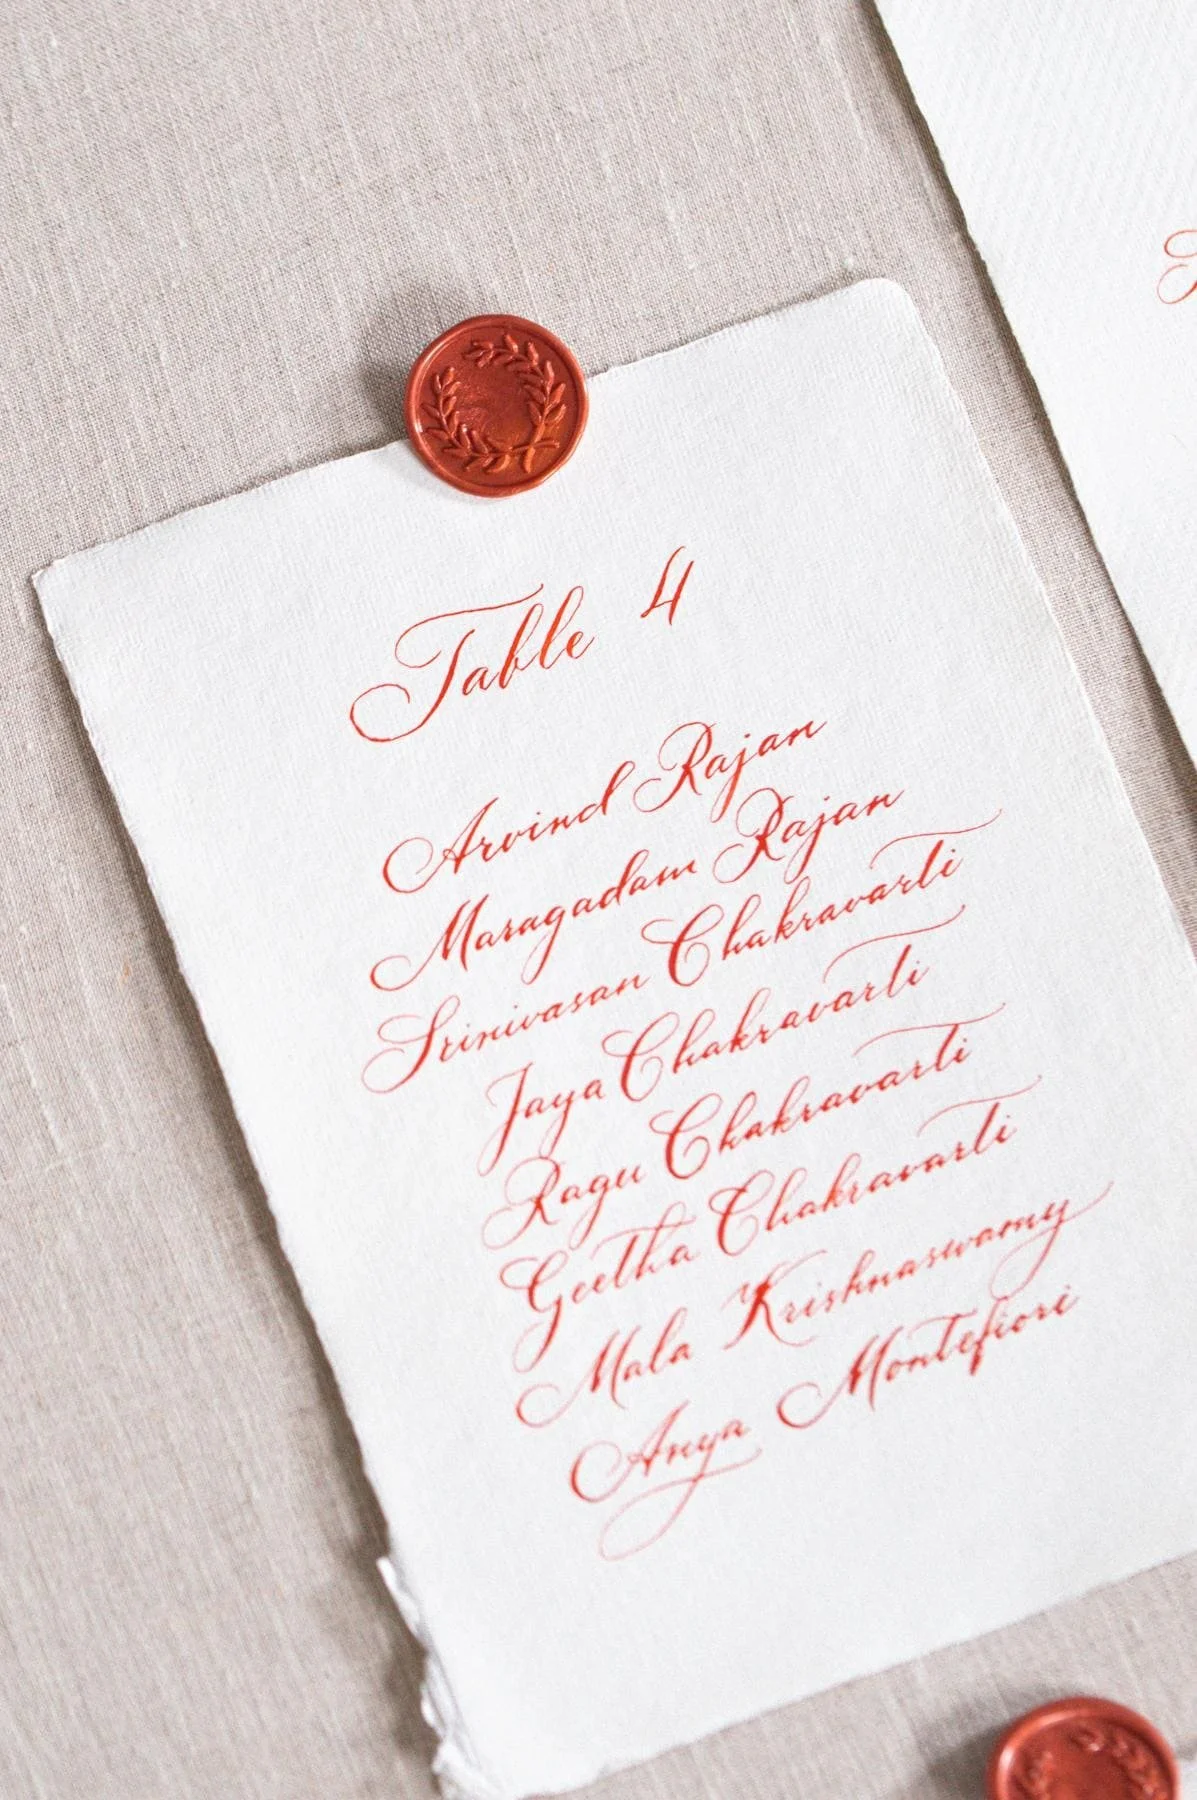 Table 4
Arvind Rajan
Maragadam Rajan
Srinivasan Chakravarti
Jaya Chakravarti
Ragu Chakravarti
Geetha Chakravarti
Mala Krishnaswamy
Anya Montefiori